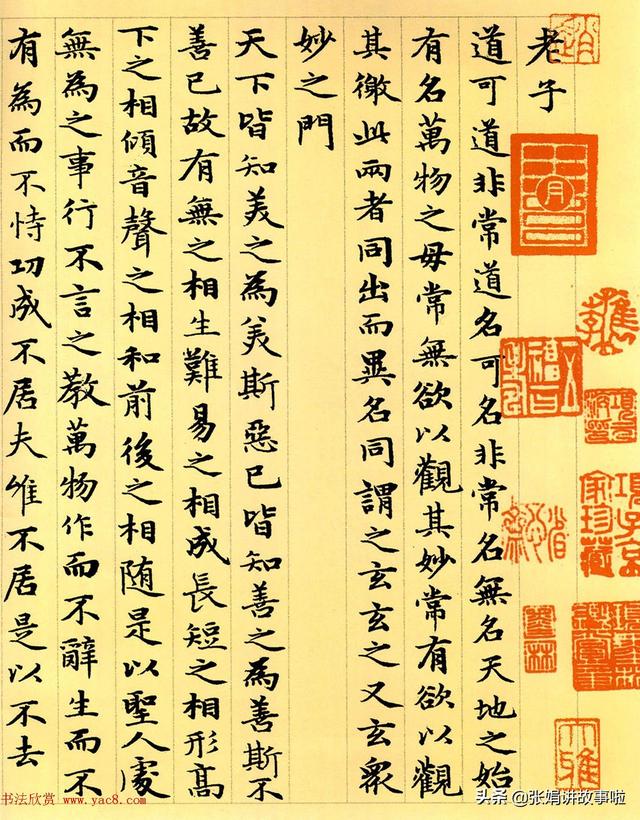 老子
道可道非常道名可名非常名無名天地之始
有名萬物之母常無欲以觀其妙常有欲以觀
其徼此兩者同出而異名同謂之玄玄之又玄眾
妙之門
天下皆知美之為美斯惡已皆知善之為善斯不
善已故有無之相生難易之相成長短之相形高
下之相傾音聲之相和前後之相随是以聖人處
無為之事行不言之教萬物作而不辭生而不
有為而不恃功成不居夫唯不居是以不去
項子京
家珍藏
书法欣赏 www.yac8.com
头条 @张娟讲故事啦